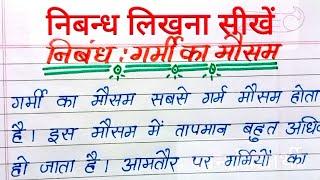 निबन्ध लिखना सीखें
निबंध : गर्मी का मौसम
गर्मी का मौसम सबसे गर्म मौसम होता
है। इस मौसम में तापमान बहुत अधिक
हो जाता है। आमतौर पर गर्मियों का